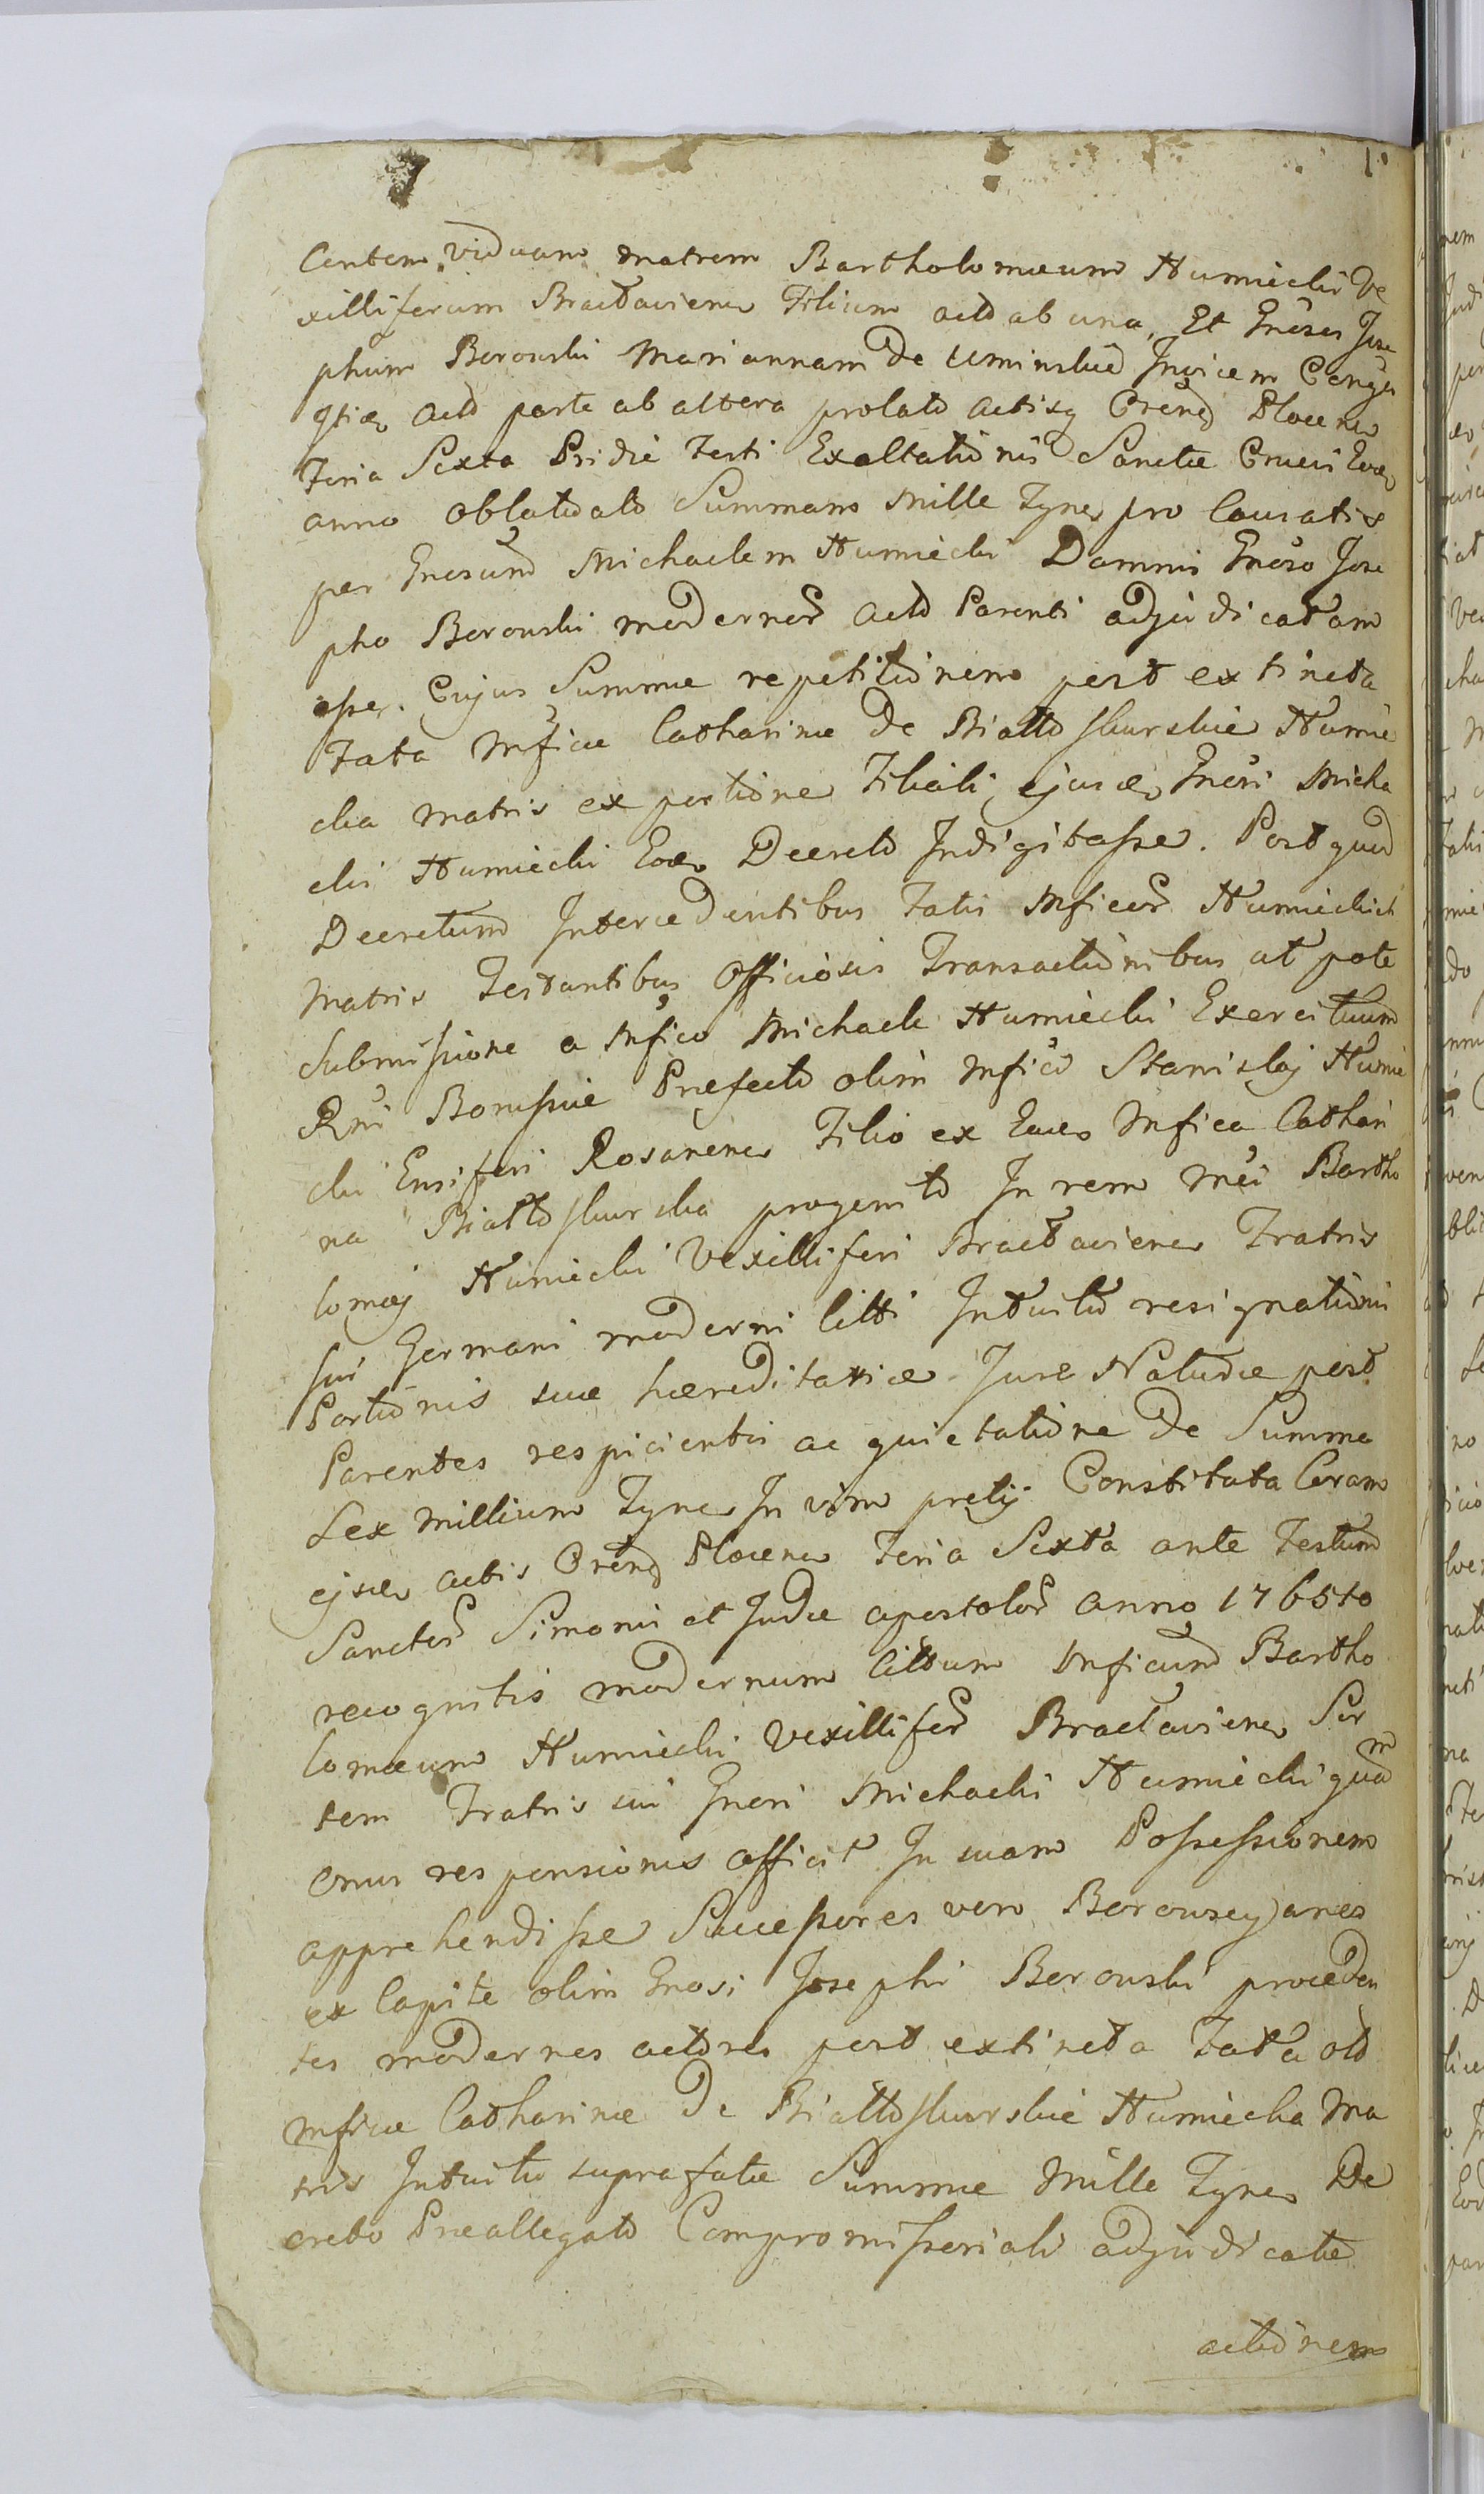 Centem viduam matrem Bartholomæum Humiecki Ve
xilliferum Bractaviens Filium acto ab una, Et Gnosos Jose
phum Borowski Mariannam de Uminskie Invicem Conju
acto parte ab altera prolato actisq Crens Plocens
Feria Sexta Pridie Festi Exaltationis Sanctæ Crucis
anno oblatoato Summam mille Tynf pro
per Gnosum Michaelem Humiecki Damnis Gnoso Jose
pho Borowski moderner acto Parenti adjudicatam
esse. Cujus Summæ repetitionem post extincta
Fata Mficæ Catharinæ de Białłoskurskie Humie
cka matris ex portione Filiali, ejusd Gnosi Micha
elis Humiecki Decreto Indigitasse. Post quod
Decretum Intercedentibus Fatis Mficor Humieckich
Matris Testantibus Officiosis Transactionibus ut pote
Submissione a Mfico Michaele Humiecki Exercituum
Rni Borussiæ Præfecto olim Mfici Stanislaj Humie
cki Ensiferi Rosanens Filio ex Mfica Cathari
na Białłoskurska progenito In rem Mci Bartho
lomæj Humiecki Vexilliferi Bractaviens Fratris
sui Germani moderni Citti Intuitu resignationis
Portionis suæ hæreditariæ Jure Naturæ post
Parentes respicientis ac quietatione de Summa
Sex Millium Tynf In vim pretij Constituta Coram
ejsd actis Crens Plocens Feria Sexta ante Festum
Sanctor Simonis et Judæ apostolor anno 1765to
recognitis modernum Cittum Mficum Bartho
lomæum Humiecki Vexillifer Bractaviens Sor
tem Fratris sui Gnosi Michaelis Humiecki quam
onus responsionis afficit In suam Possessionem
apprehendisse Successores vero Borowscyanos
ex Capite olim Gnosi Josephi Borowski proceden
tes modernos actores post extincta Fata oto
Mficæ Catharinæ de Białłoskurskie Humiecka Ma
tris Intuitu suprafatæ Summæ Mille Tynf De
creto Præallegato Compromissoriali adjudicatæ
actionem